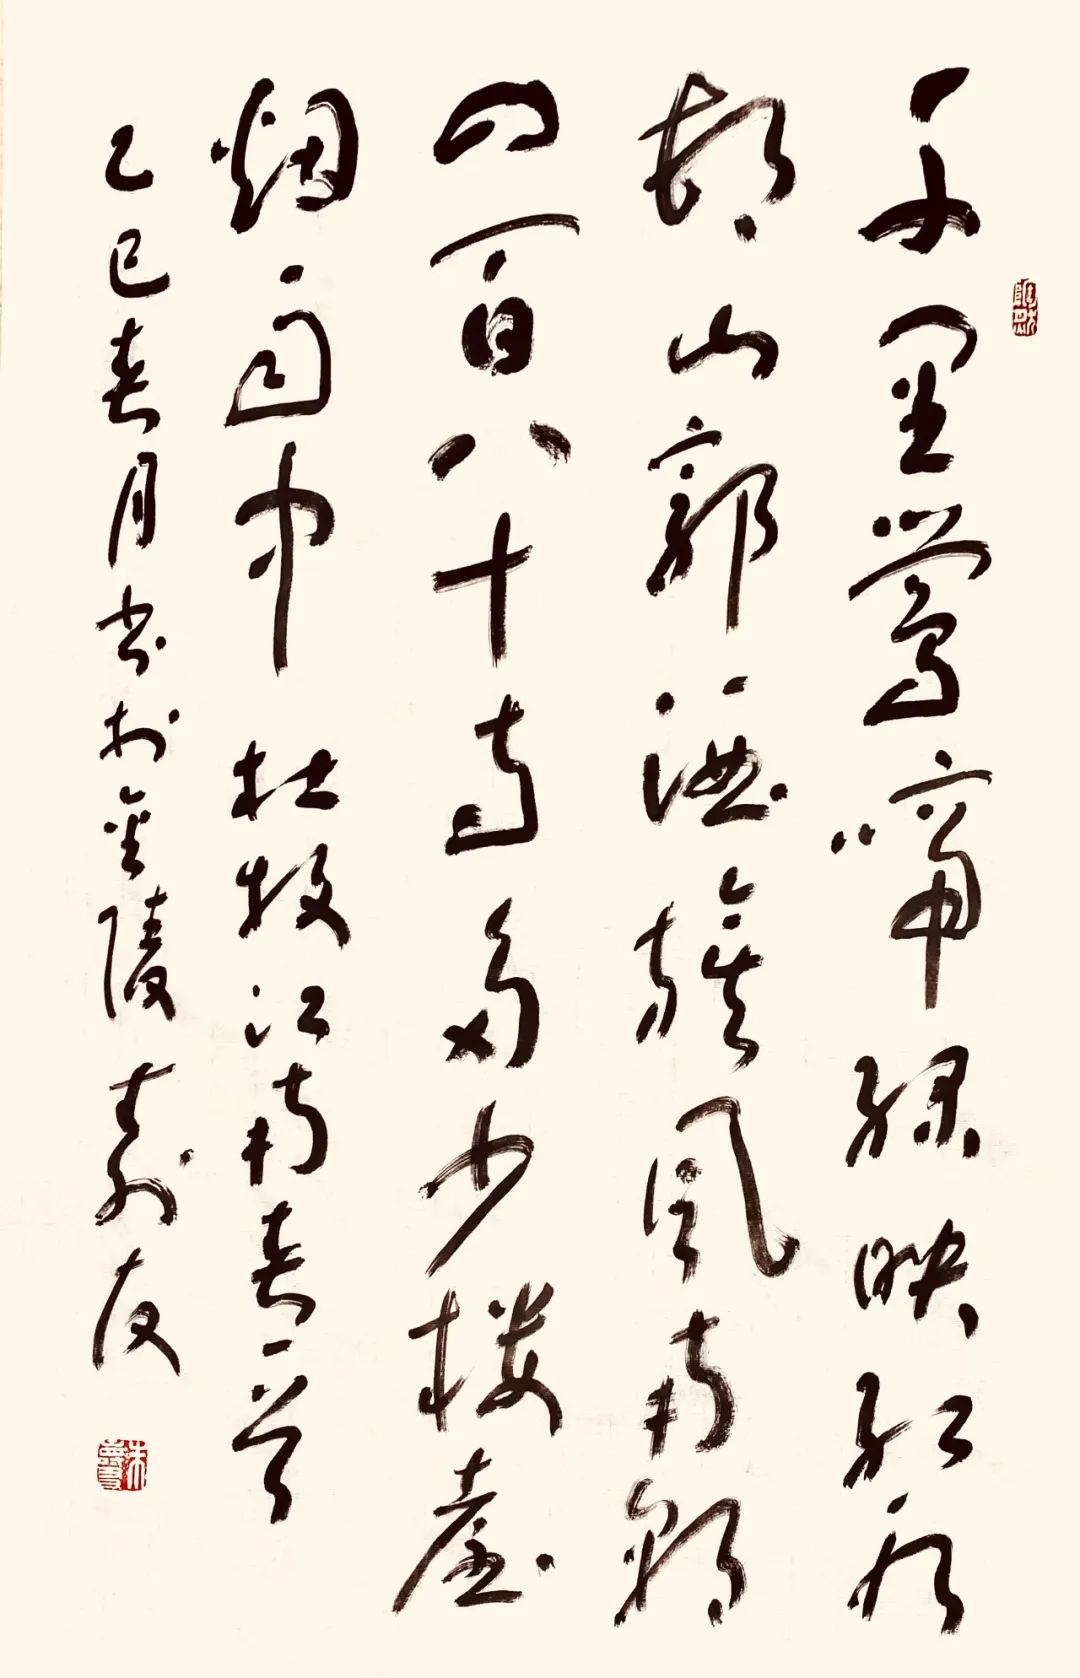 千里鶯啼綠映紅水
村山郭酒旗風南朝
四百八十寺多少樓臺
烟雨中 杜牧江南春一首
乙巳春月書於金陵壽友